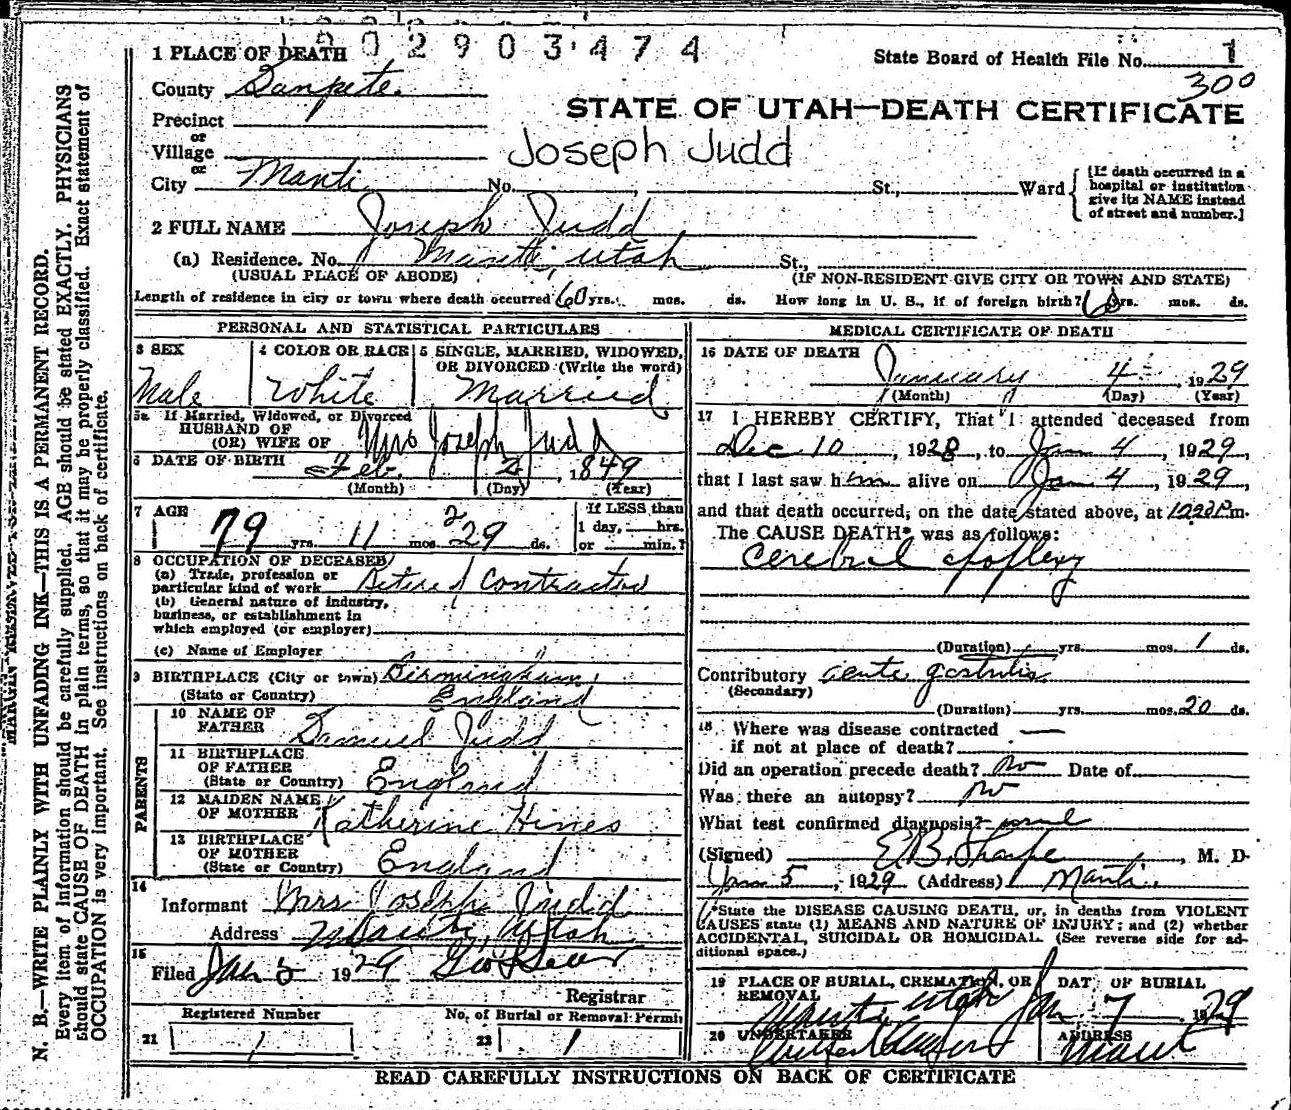 1902903474
1 PLACE OF DEATH
State Board of Health File No. 1
County Sanpete.
300
STATE OF UTAH—DEATH CERTIFICATE
Precinct
or
Village
Joseph Judd
or
City Manti No. , St., Ward
[If death occurred in a
hospital or institution
give its NAME instead
of street and number.]
2 FULL NAME Joseph Judd
(a) Residence. No. Manti, Utah St.,
(USUAL PLACE OF ABODE) (IF NON-RESIDENT GIVE CITY OR TOWN AND STATE)
Length of residence in city or town where death occurred 60 yrs. mos. ds. How long in U. S., if of foreign birth? 60 yrs. mos. ds.
PERSONAL AND STATISTICAL PARTICULARS
3 SEX 4 COLOR OR RACE 5 SINGLE, MARRIED, WIDOWED,
OR DIVORCED (Write the word)
Male White Married
5a If Married, Widowed, or Divorced
HUSBAND OF
(OR) WIFE OF Mrs Joseph Judd
6 DATE OF BIRTH Feb. 2, 1849
(Month) (Day) (Year)
7 AGE 79 yrs. 11 mos. 2 29 ds.
If LESS than
1 day, hrs.
or min.?
8 OCCUPATION OF DECEASED
(a) Trade, profession or
particular kind of work Retired Contractor
(b) General nature of industry,
business, or establishment in
which employed (or employer)
(c) Name of Employer
9 BIRTHPLACE (City or town) Birmingham,
(State or Country) England
PARENTS
10 NAME OF
FATHER Samuel Judd
11 BIRTHPLACE
OF FATHER
(State or Country) England
12 MAIDEN NAME
OF MOTHER Katherine Hines
13 BIRTHPLACE
OF MOTHER
(State or Country) England
14
Informant Mrs Joseph Judd
Address Manti, Utah
15
Filed Jan 5 1929
Registrar
Registered Number No. of Burial or Removal Permit
21 1 22 1
MEDICAL CERTIFICATE OF DEATH
16 DATE OF DEATH
January 4 1929
(Month) (Day) (Year)
17 I HEREBY CERTIFY, That I attended deceased from
Dec 10, 1928, to Jan 4, 1929,
that I last saw him alive on Jan 4, 1929,
and that death occurred, on the date stated above, at m.
The CAUSE DEATH* was as follows:
Cerebral apoplexy
(Duration) yrs. mos. 1 ds.
Contributory acute gastritis
(Secondary)
(Duration) yrs. mos. 20 ds.
18 Where was disease contracted
if not at place of death?
Did an operation precede death? no Date of
Was there an autopsy? no
What test confirmed diagnosis? usual
(Signed) E.B. Sharpe, M. D.
Jan 5, 1929 (Address) Manti.
*State the DISEASE CAUSING DEATH, or, in deaths from VIOLENT
CAUSES state (1) MEANS AND NATURE OF INJURY; and (2) whether
ACCIDENTAL, SUICIDAL OR HOMICIDAL. (See reverse side for ad-
ditional space.)
19 PLACE OF BURIAL, CREMATION, OR REMOVAL DATE OF BURIAL
Manti Utah Jan 7 1929
20 UNDERTAKER ADDRESS
Manti
READ CAREFULLY INSTRUCTIONS ON BACK OF CERTIFICATE
N. B.—WRITE PLAINLY WITH UNFADING INK—THIS IS A PERMANENT RECORD.
Every item of information should be carefully supplied. AGE should be stated EXACTLY. PHYSICIANS
should state CAUSE OF DEATH in plain terms, so that it may be properly classified. Exact statement of
OCCUPATION is very important. See instructions on back of certificate.